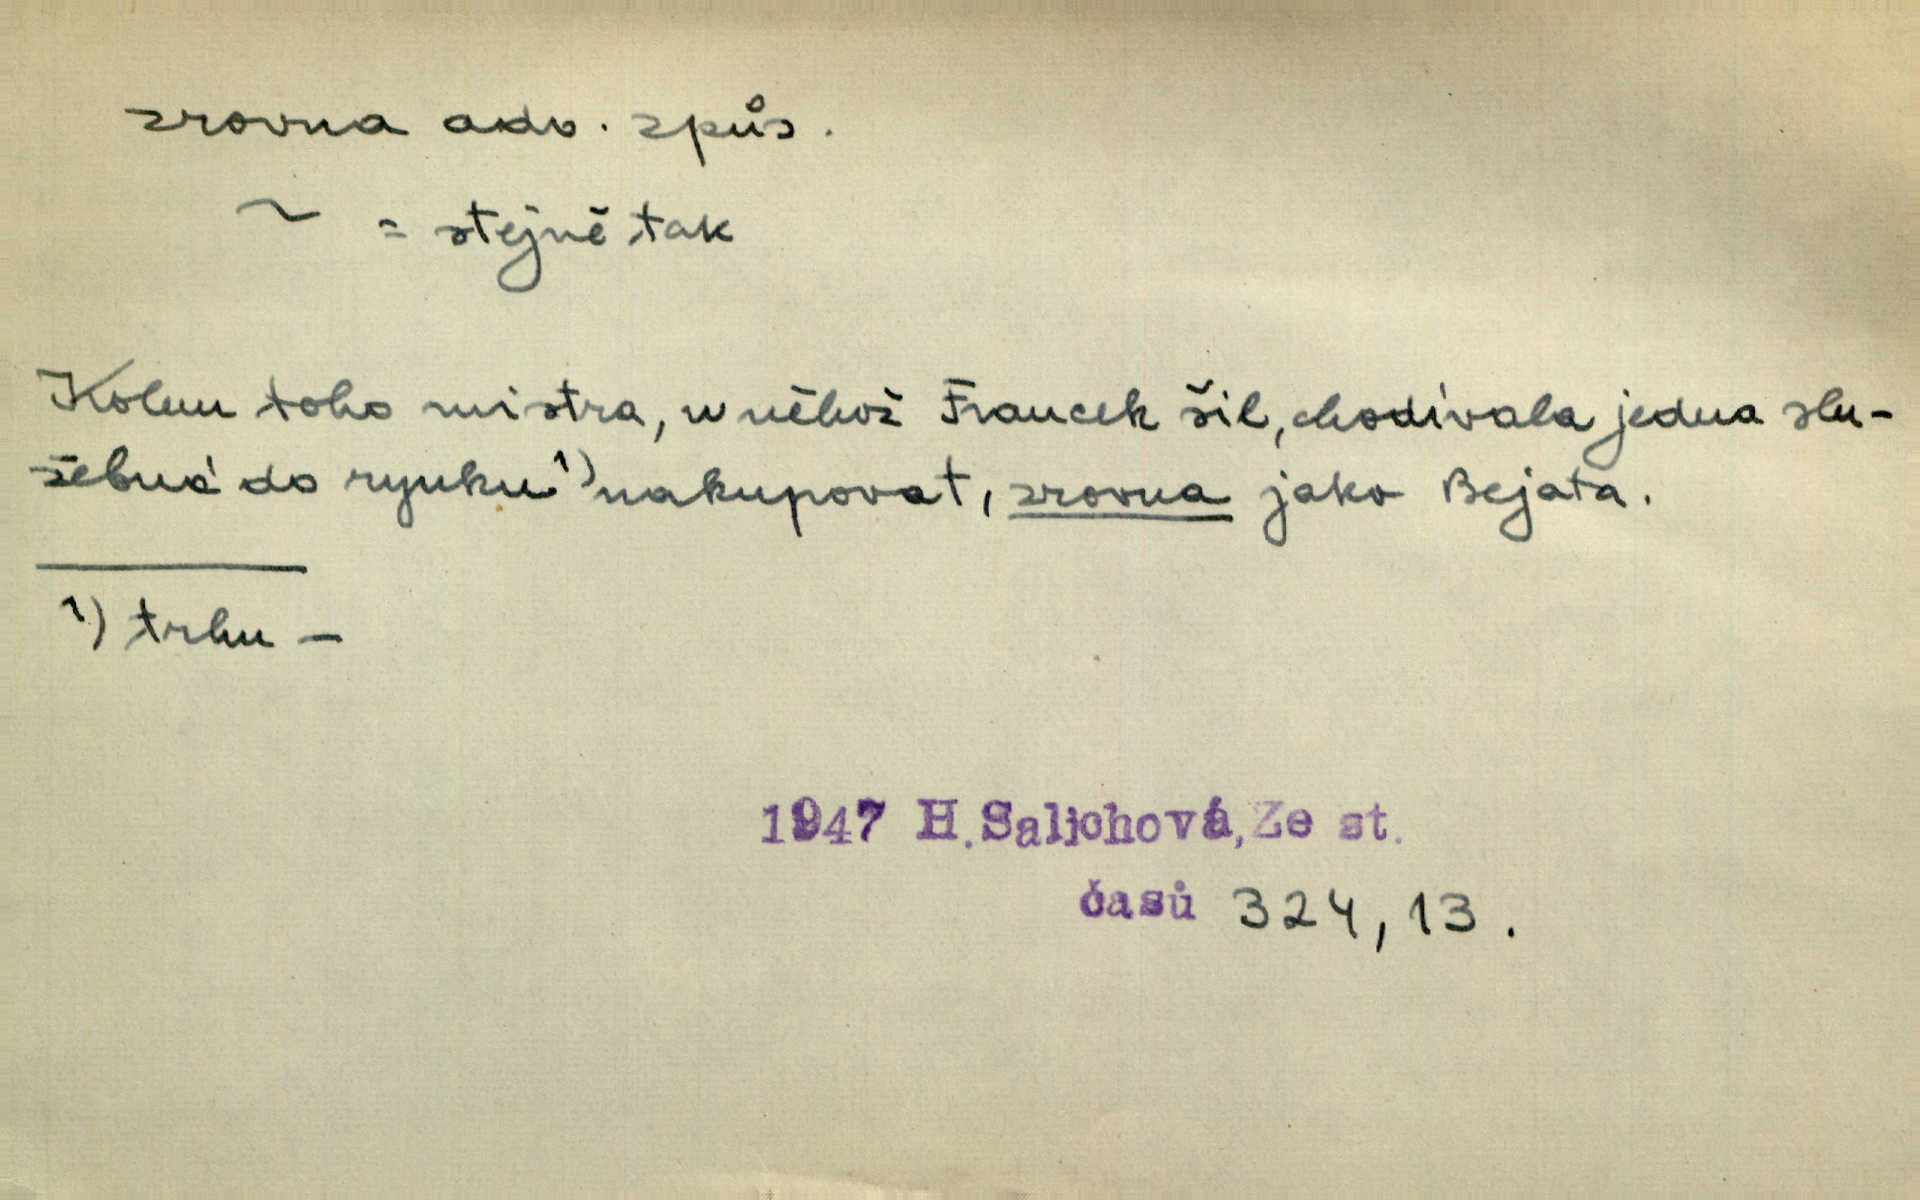 zrovna adv. způs.
~ = stejně tak
Kolem toho mistra, u něhož Francek šil, chodívala jedna slu-
žebná do rynku¹) nakupovat, zrovna jako Bejata.
¹) trhu —
1947 H. Salichová, Ze st.
časů 324, 13.